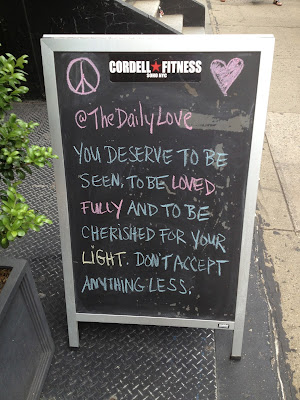 CORDELL★FITNESS
SOHO NYC
@TheDailyLove
YOU DESERVE TO BE
SEEN, TO BE LOVED
FULLY AND TO BE
CHERISHED FOR YOUR
LIGHT. DON'T ACCEPT
ANYTHING LESS.